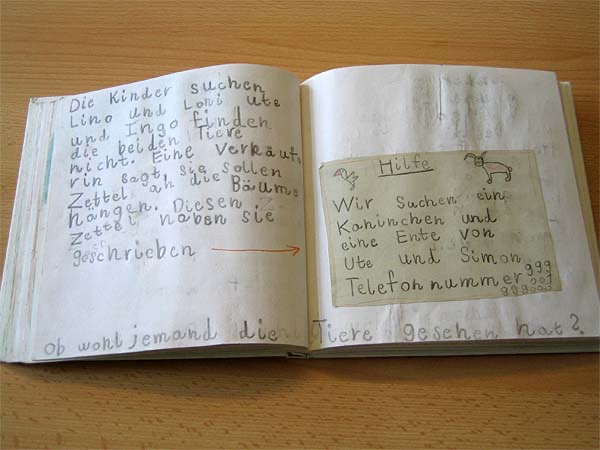 Die Kinder suchen
Lino und Lori ute
und Ingo finden
die beiden Tiere
nicht. Eine verkäufe
rin sagt, sie sollen
Zettel an die Bäume
hängen. Diesen Z
Zettel haben sie
geschrieben
Hilfe
Wir Suchen ein
Kaninchen und
eine Ente von
Ute und Simon
Telefohnummer
Ob wohl jemand die Tiere gesehen hat?